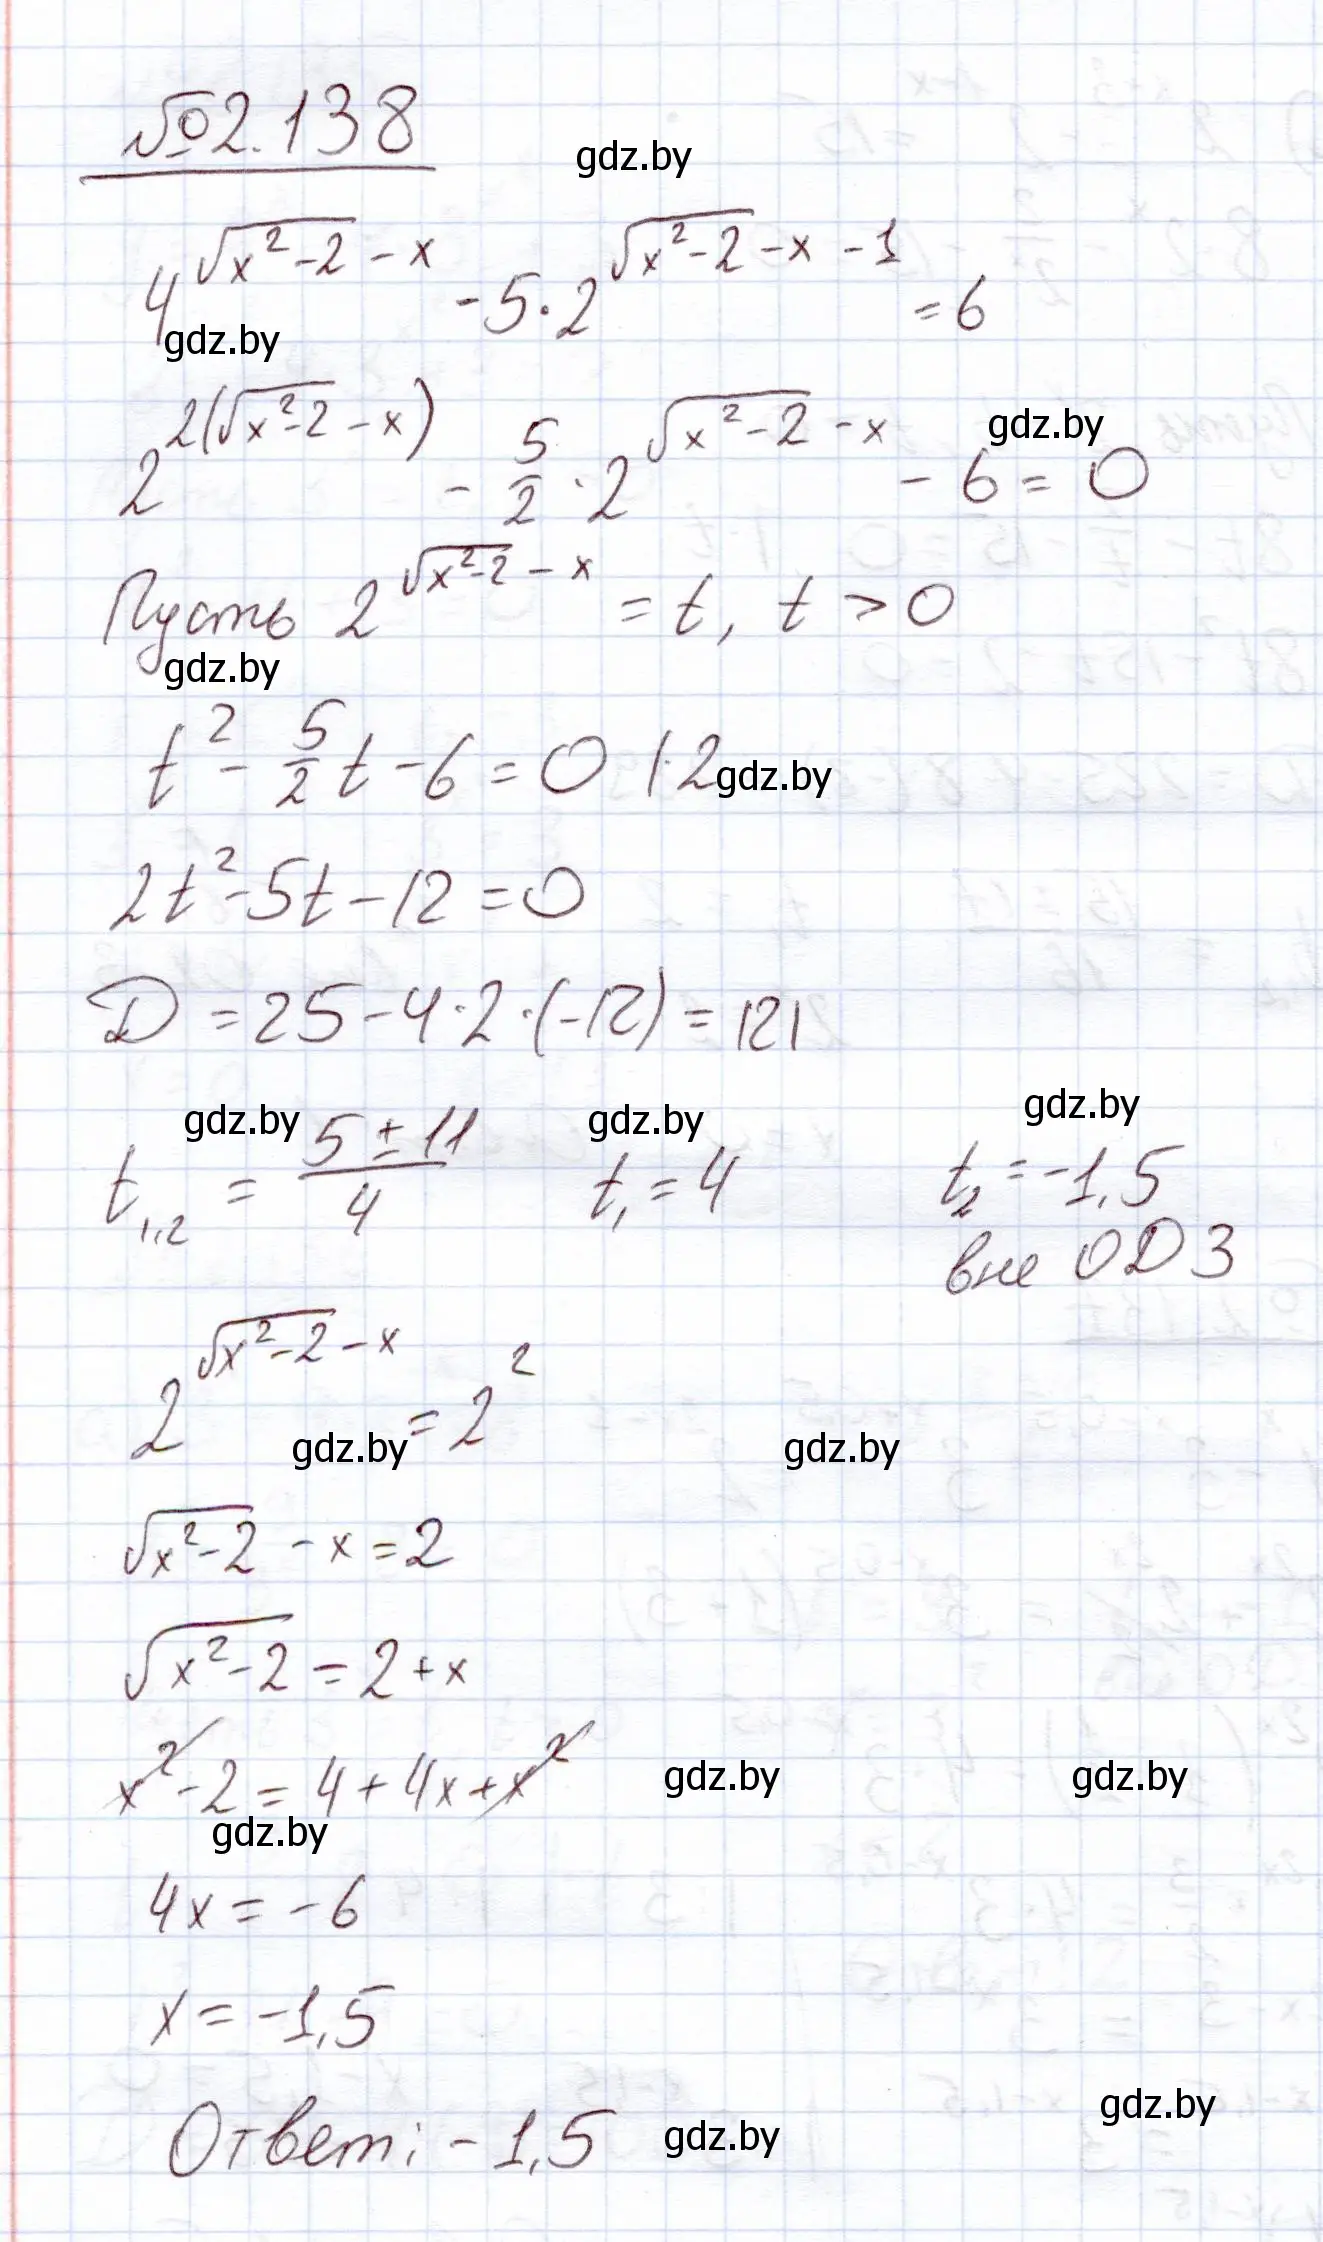 №2.138
gdz.by
4^(√(x²-2) - x) - 5·2^(√(x²-2) - x - 1) = 6
gdz.by
2^(2(√(x²-2) - x)) - 5/2 · 2^(√(x²-2) - x) - 6 = 0
gdz.by
Пусть 2^(√(x²-2) - x) = t, t > 0
gdz.by
t² - 5/2 t - 6 = 0 |·2
gdz.by
2t² - 5t - 12 = 0
D = 25 - 4·2·(-12) = 121
gdz.by gdz.by gdz.by
t₁,₂ = (5 ± 11)/4 t₁ = 4 t₂ = -1,5
вне ОДЗ
2^(√(x²-2) - x) = 2²
gdz.by gdz.by
√(x²-2) - x = 2
√(x²-2) = 2 + x
x² - 2 = 4 + 4x + x²
gdz.by gdz.by
gdz.by
4x = -6
x = -1,5
gdz.by
Ответ: -1,5
gdz.by